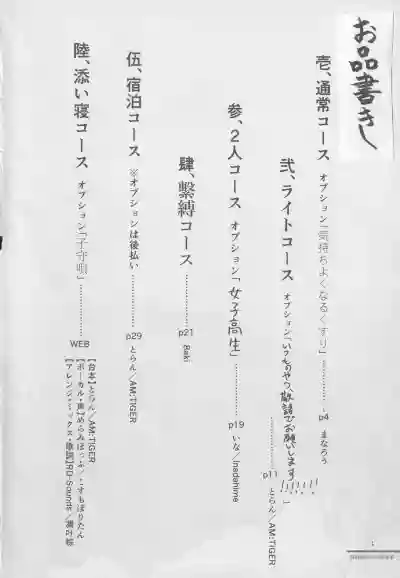 お品書きし
壱、通常コース オプション「気持ちよくなるくすり」………p4 まなろう
弐、ライトコース オプション「いつものやつ、敬語でお願いします!!!!!!」………p11 とらん/AM:TIGER
参、2人コース オプション「女子高生」………p19 いな/Inadahime
肆、繋縛コース………p21 Baki
伍、宿泊コース ※オプションは後払い………p29 とらん/AM:TIGER
陸、添い寝コース オプション「子守唄」………WEB
【台本】とらん/AM:TIGER
【ボーカル・声】めらみぽっぷ/こすもぽりたん
【アレンジ・ミックス・歌詞】RD-Sounds/凋叶棕